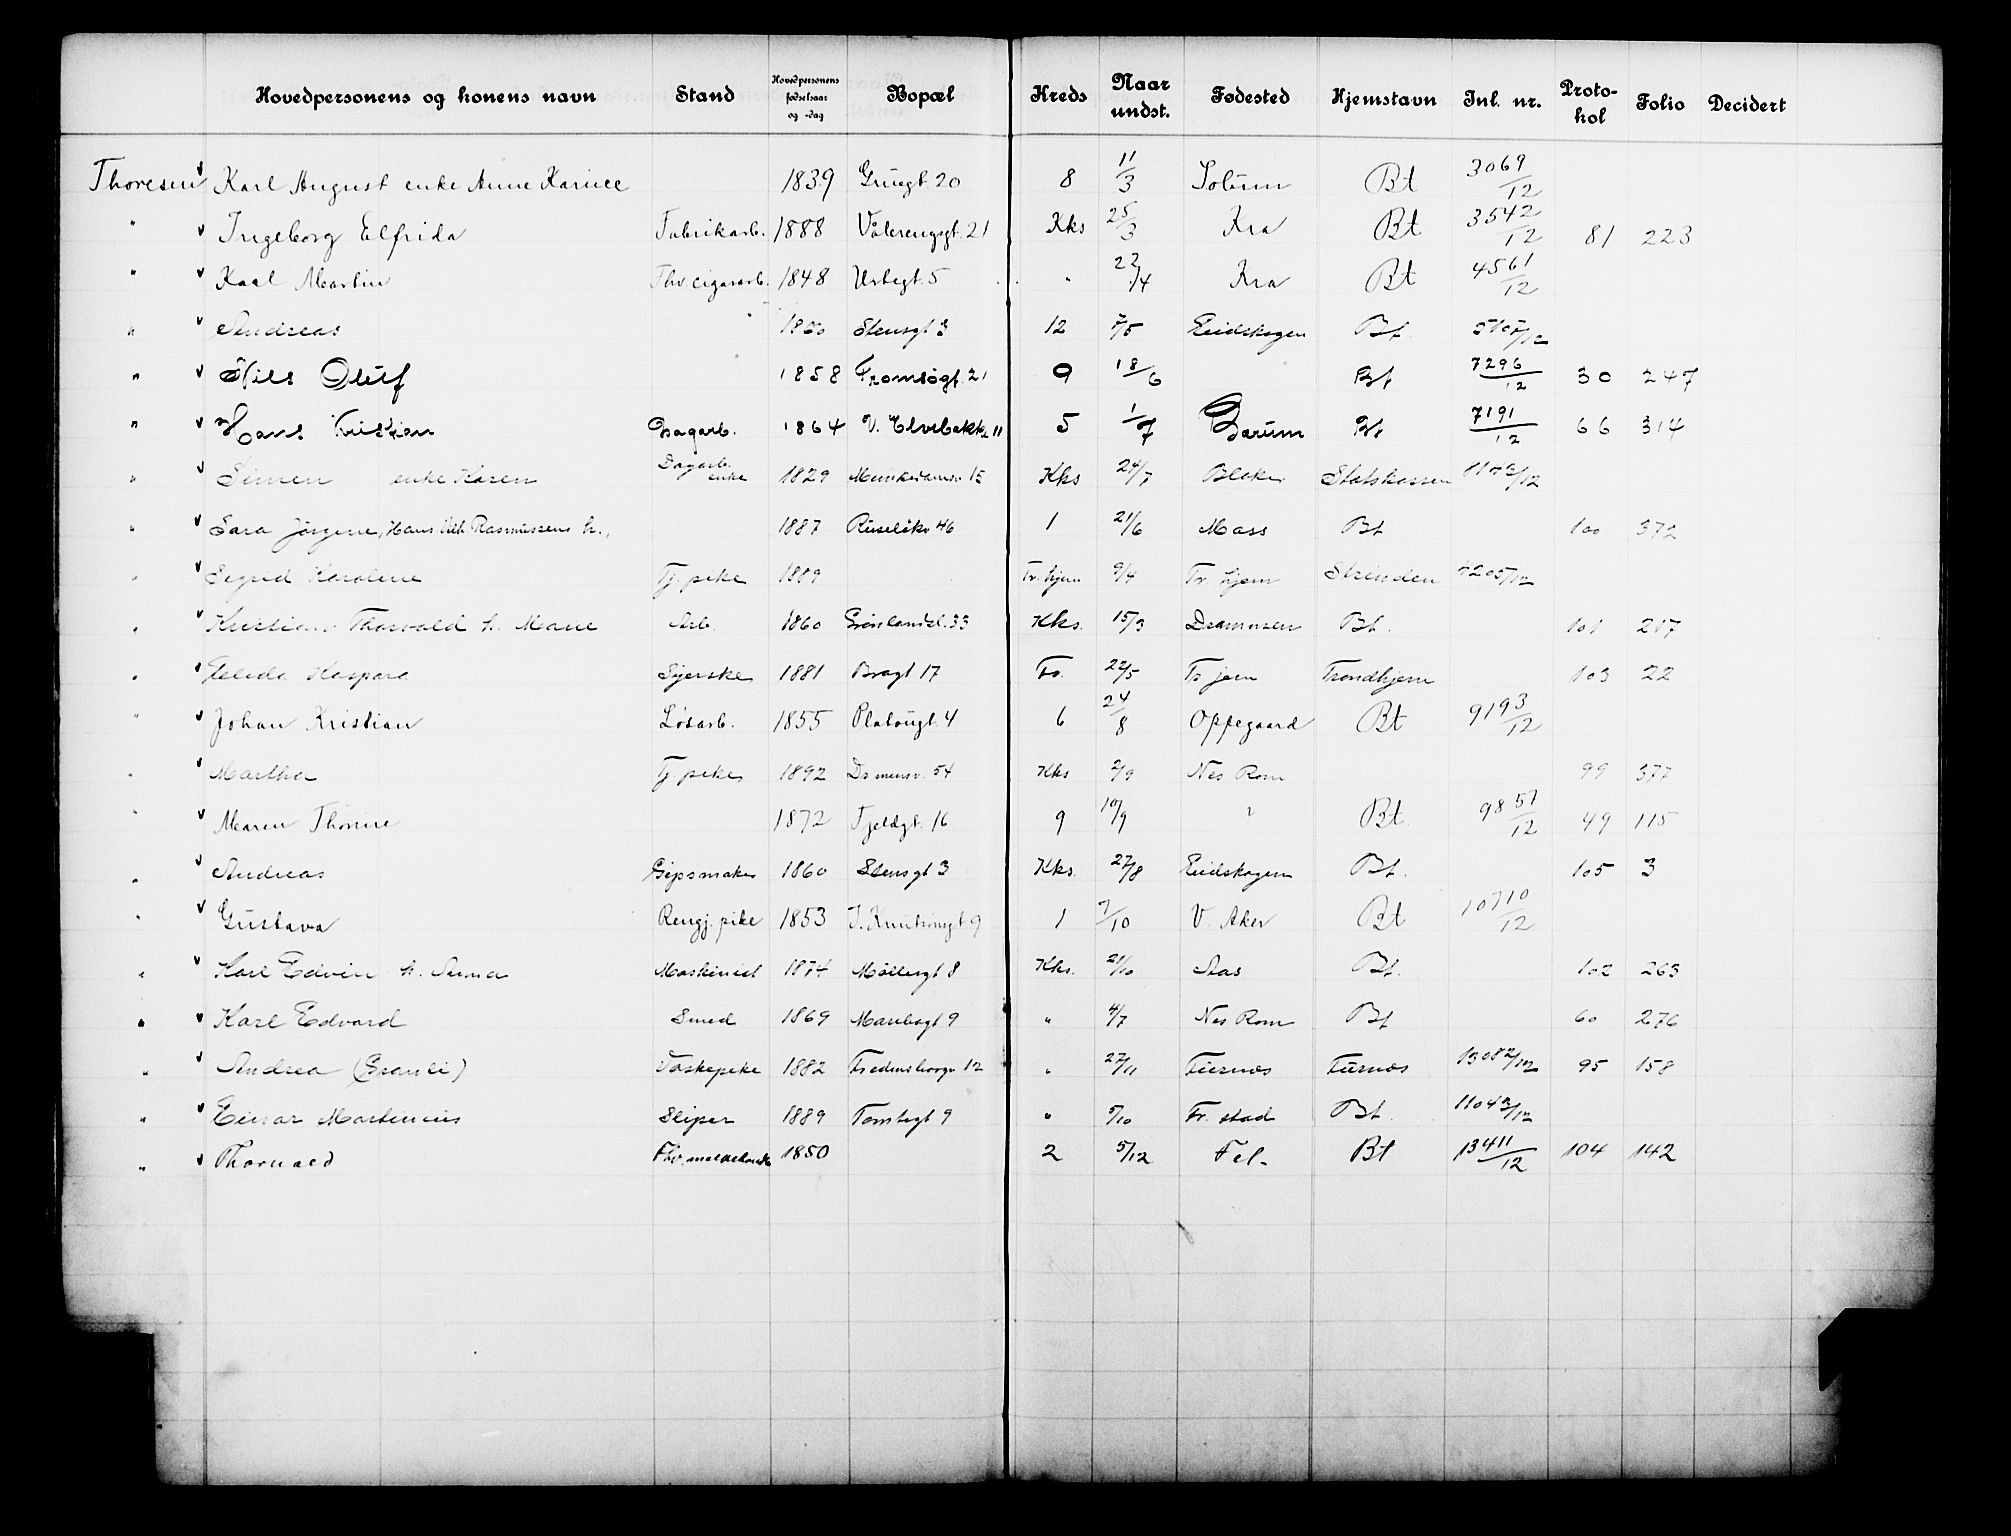 Hovedpersonens og konens navn Stand Hovedpersonens fødselsaar og -dag Bopæl Kreds Naar undst. Fødested Hjemstavn Inl. nr. Proto-kol Folio Decidert
Thoresen v Karl August enke Anne Karine 1839 Grüegt. 20 8 11/3 Solum Bt 3069/12
" v Ingeborg Elfrida Fabrikarb. 1888 Vålerengsgt. 21 Kks 25/3 Kra Bt 3542/12 81 223
" v Karl Martin Fhv. cigararb. 1848 Urtegt. 5 " 22/4 Kra Bt 4561/12
" v Andreas 1860 Stensgt 3 12 7/5 Eidskogen Bt. 5107/12
" v Nils Oluf 1858 Tromsøgt. 21 9 18/6 Bt 7296/12 30 247
" v Hans Kristian Dagarb. 1864 V. Elvebakke 11 5 1/7 Bærum Bt 7191/12 66 314
" v Simen enke Karen Dagarb. enke 1829 Munkedamsv 15 Kks 24/7 Blaker Statskassen /12
" v Sara Jørgine, Hans Vilh Rasmussens h., 1887 Ruseløkv 46 1 21/6 Moss Bt 100 372
" v Sigrid Karoline Tj. pike 1889 Tr. hjem 9/4 Tr. hjem Strinden 4205/12
" v Kristian Thorvald h. Marie Arb. 1860 Grønlandsl. 33 Kks. 15/3 Drammen Bt. 101 217
" v Kaspara Syerske 1881 Bragt. 17 22/5 Trondhjem 103 22
" v Johan Kristian Løsarb. 1855 Platougt. 4 6 24/8 Oppegaard Bt 9193/12
" v Martha Tj pike 1892 Dr mensv. 54 Kks 2/9 Nes Rom 99 377
" v Maren Thorine 1872 Fjeldgt. 16 9 10/9 ? Bt. 9857/12 49 115
" v Andreas Gipsmaker 1860 Stensgt 3 Kks. 27/8 Eidskogen Bt. 105 3
" v Gustava Rengj. pike 1853 J. Knutsensgt. 9 1 7/10 V. Aker Bt 10710/12
" v Karl Edvin h. Anna Maskinist 1874 Møllergt 8 Kks. 21/10 Aas Bt. 102 263
" v Karl Edvard Smed 1869 Maribogt 9 " 4/7 Nes Rom Bt 60 276
" v Andrea (Granli) Vaskepike 1882 Fredensborgv 12 " 27/11 Furnes Furnes 13082/12 95 158
" v Einar Martinius Sliper 1889 Tomtegt 9 " 5/10 Fr. stad Bt. 11043/12
" v Thorvald 1850 2 5/12 Fet. Bt 13411/12 104 142